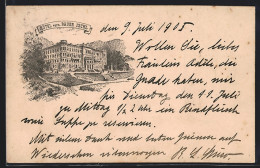 HOTEL VIER
den 9. Juli 1905
Wollen Sie, liebes
Fräulein Adèle, die
Gnade haben, mir
für Dienstag den 11. Juli
zu Mittag ½ 2 Uhr ein Rindfleisch
und Suppe zu reservieren.
Mit vielem Dank und besten Grüssen auf
Wiedersehen